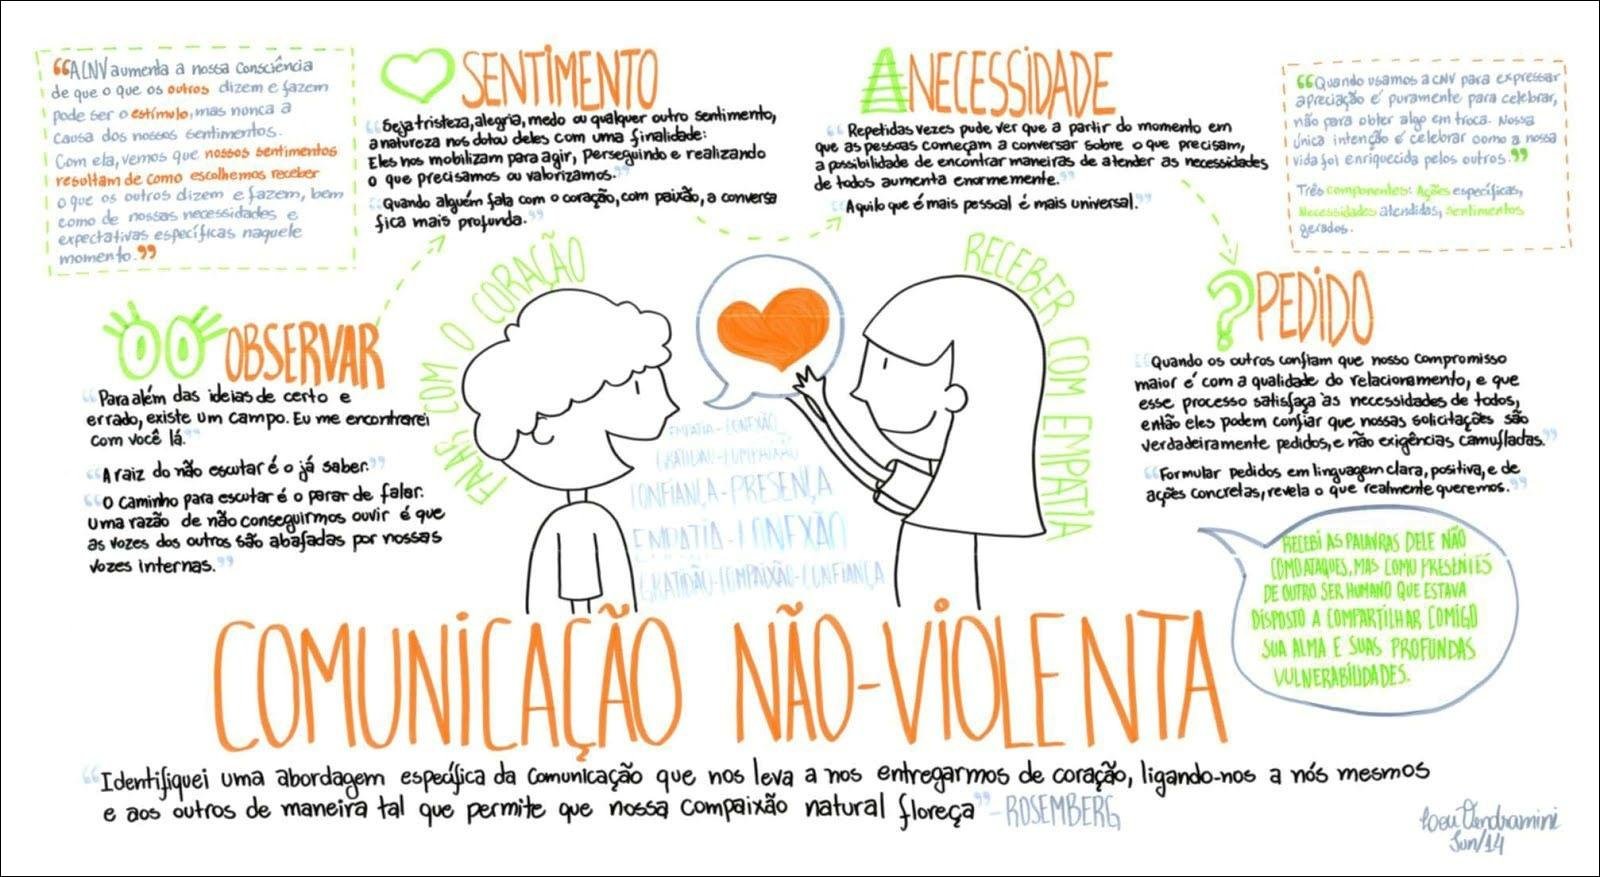 “A CNV aumenta a nossa Consciência
de que o que os outros dizem e fazem
pode ser o estímulo, mas nunca a
causa dos nossos sentimentos.
Com ela, vemos que nossos sentimentos
resultam de como escolhemos receber
o que os outros dizem e fazem, bem
como de nossas necessidades e
expectativas específicas naquele
momento.”
SENTIMENTO
“Seja tristeza, alegria, medo ou qualquer outro sentimento,
a natureza nos dotou deles com uma finalidade:
Eles nos mobilizam para agir, perseguindo e realizando
o que precisamos ou valorizamos.”
“Quando alguém fala com o coração, com paixão, a conversa
fica mais profunda.”
NECESSIDADE
“Repetidas vezes pude ver que a partir do momento em
que as pessoas começam a conversar sobre o que precisam,
a possibilidade de encontrar maneiras de atender as necessidades
de todos aumenta enormemente.”
“Aquilo que é mais pessoal é mais universal.”
“Quando usamos a CNV para expressar
apreciação é puramente para celebrar,
não para obter algo em troca. Nossa
única intenção é celebrar como a nossa
vida foi enriquecida pelos outros.”
Três componentes: Ações específicas,
Necessidades atendidas, Sentimentos
gerados.
OBSERVAR
“Para além das ideias de certo e
errado, existe um campo. Eu me encontrarei
com você lá.”
“A raiz do não escutar é o já saber.”
“O Caminho para escutar é o parar de falar.
Uma razão de não conseguirmos ouvir é que
as vozes dos outros são abafadas por nossas
vozes internas.”
FALAR COM O CORAÇÃO
RECEBER COM EMPATIA
EMPATIA-CONEXÃO
GRATIDÃO-COMPAIXÃO
CONFIANÇA-PRESENÇA
EMPATIA-CONEXÃO
GRATIDÃO-COMPAIXÃO-CONFIANÇA
? PEDIDO
“Quando os outros confiam que nosso compromisso
maior é com a qualidade do relacionamento, e que
esse processo satisfaça às necessidades de todos,
então eles podem confiar que nossas solicitações são
verdadeiramente pedidos, e não exigências camufladas.”
“Formular pedidos em linguagem clara, positiva, e de
ações concretas, revela o que realmente queremos.”
RECEBI AS PALAVRAS DELE NÃO
COMO ATAQUES, MAS COMO PRESENTES
DE OUTRO SER HUMANO QUE ESTAVA
DISPOSTO A COMPARTILHAR COMIGO
SUA ALMA E SUAS PROFUNDAS
VULNERABILIDADES.
COMUNICAÇÃO NÃO-VIOLENTA
“Identifiquei uma abordagem específica da Comunicação que nos leva a nos entregarmos de coração, ligando-nos a nós mesmos
e aos outros de maneira tal que permite que nossa compaixão natural floreça” - ROSEMBERG
Vendramini
Jun/14